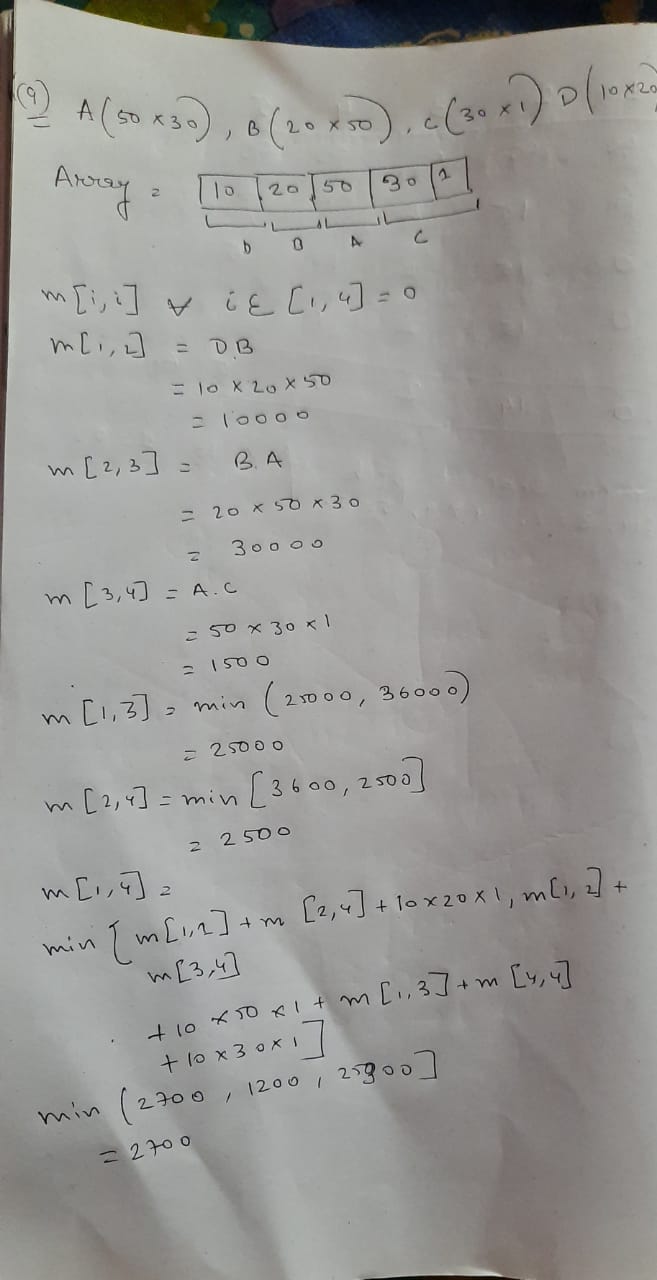 (9) A(50 x 30), B(20 x 50), C(30 x 1) D(10 x 20)
Array = 10 20 50 30 1
D B A C
m[i,i] ∀ i ε [1,4] = 0
m[1,2] = D.B
= 10 x 20 x 50
= 10000
m[2,3] = B.A
= 20 x 50 x 30
= 30000
m[3,4] = A.C
= 50 x 30 x 1
= 1500
m[1,3] = min (25000, 36000)
= 25000
m[2,4] = min [3600, 2500]
= 2500
m[1,4] =
min [m[1,1] + m [2,4] + 10x20x1, m[1,2] +
m[3,4]
+ 10 x 50 x 1 + m[1,3] + m[4,4]
+ 10 x 30 x 1]
min (2700, 1200, 25300]
= 2700